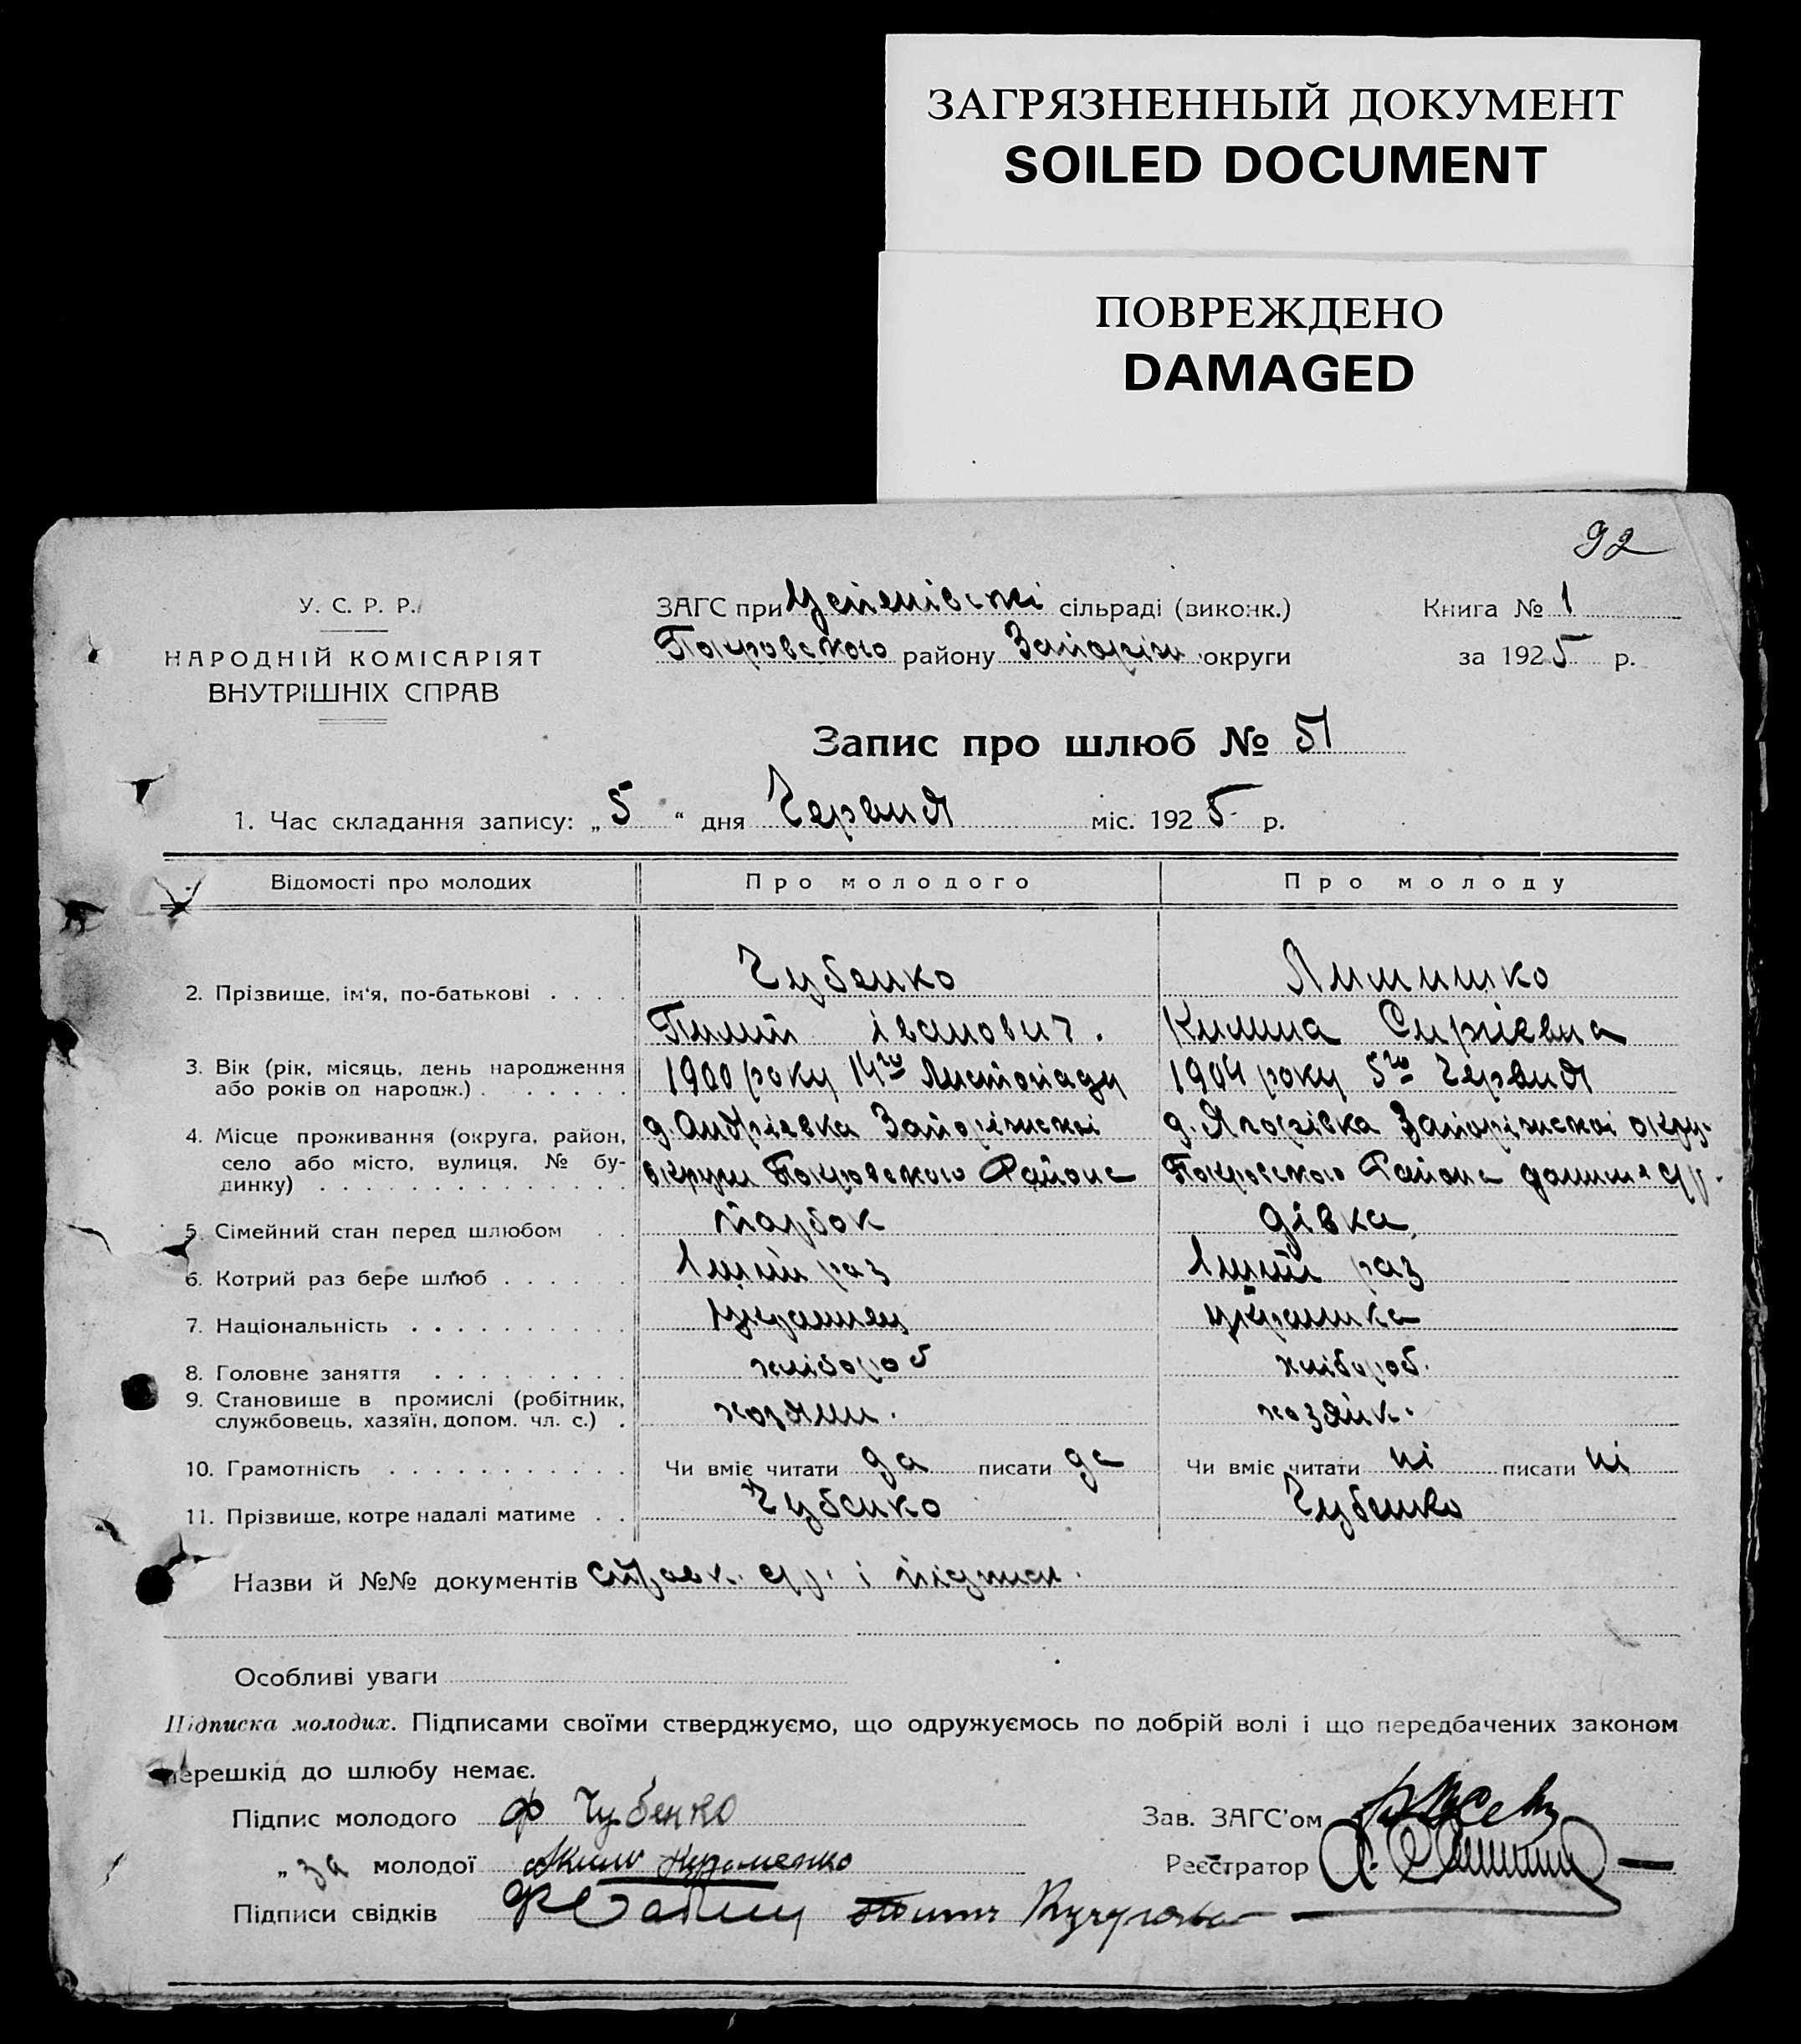 ЗАГРЯЗНЕННЫЙ ДОКУМЕНТ
SOILED DOCUMENT
ПОВРЕЖДЕНО
DAMAGED
92
У. С. Р. Р.
НАРОДНІЙ КОМІСАРІЯТ
ВНУТРІШНІХ СПРАВ
ЗАГС при Успенівські сільраді (виконк.)
Покровського району Запоріж округи
Книга № 1
за 1925 р.
Запис про шлюб № 51
1. Час складання запису: „5“ дня Червня міс. 1925 р.
Відомості про молодих Про молодого Про молоду
2. Прізвище, ім'я, по-батькові . . . . Чубенко
Пилип Іванович. Килина Сиргіевна
3. Вік (рік, місяць, день народження
або років од народж.) . . . . . . 1900 року 14го Листопаду 1904 року 5го Червня
4. Місце проживання (округа, район,
село або місто, вулиця, № бу-
динку) . . . . . . . . . . . . . .
д. Андріевка Запоріжскоі
округи Покровского Района
Запоріжскоі окру.
Покровского Района
5. Сімейний стан перед шлюбом . . парубок дівка
6. Котрий раз бере шлюб . . . . . . 1ший раз 1ший раз
7. Національність . . . . . . . . . . Украинец украинка
8. Головне заняття . . . . . . . . . хлібороб хлібороб.
9. Становище в промислі (робітник,
службовець, хазяїн, допом. чл. с.) . хозяин. хозяйк.
10. Грамотність . . . . . . . . . . . Чи вміє читати да писати да Чи вміє читати ні писати ні
11. Прізвище, котре надалі матиме . . Чубенко Чубенко
Назви й №№ документів справк. с/р. і підписи.
Особливі уваги
Підписка молодих. Підписами своїми стверджуємо, що одружуємось по добрій волі і що передбачених законом
перешкід до шлюбу немає.
Підпис молодого ф Чубенко
Зав. ЗАГС'ом
„ за молодої
Реєстратор
Підписи свідків